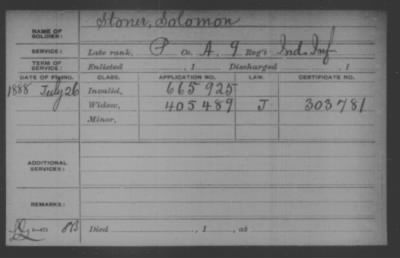 NAME OF SOLDIER: Stoner, Solomon
SERVICE: Late rank, P Co. A, 9 Reg't Ind. Inf
TERM OF SERVICE: Enlisted , 1 Discharged , 1
DATE OF FILING. CLASS. APPLICATION NO. LAW. CERTIFICATE NO.
1888 July 26 Invalid, 665 925
Widow, 405 489 J 303 781
Minor,
ADDITIONAL SERVICES:
REMARKS:
Died , 1 , at